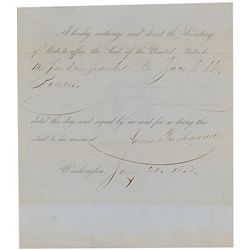 I hereby authorize and direct the Secretary
of State to affix the Seal of the United States to
the pardon granted to Jacob
dated this day, and signed by me and for so doing this
shall be his warrant.
James Buchanan
Washington, Jan